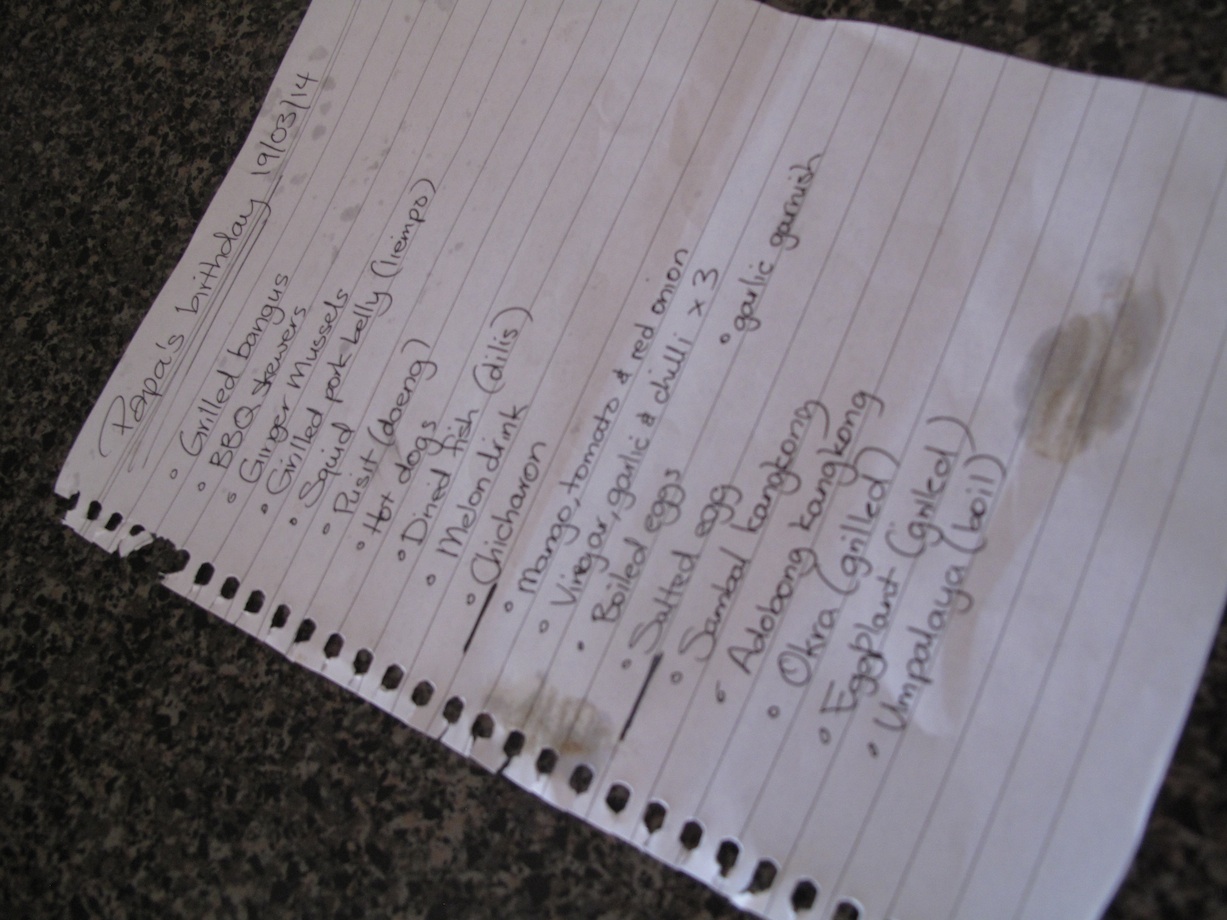 Papa's birthday 19/03/14
• Grilled bangus
• BBQ skewers
• Ginger Mussels
• Grilled pork belly (liempo)
• Squid
• Pusit (daeng)
• Hot dogs
• Dried fish (dilis)
• Melon drink
• Chicharon
• Mango, tomato & red onion
• Vinegar, garlic & chilli x 3
• Boiled eggs
• garlic garnish
• Salted egg
• Sambal kangkong
• Adobong kangkong
• Okra (grilled)
• Eggplant (grilled)
• Umpalaya (boil)